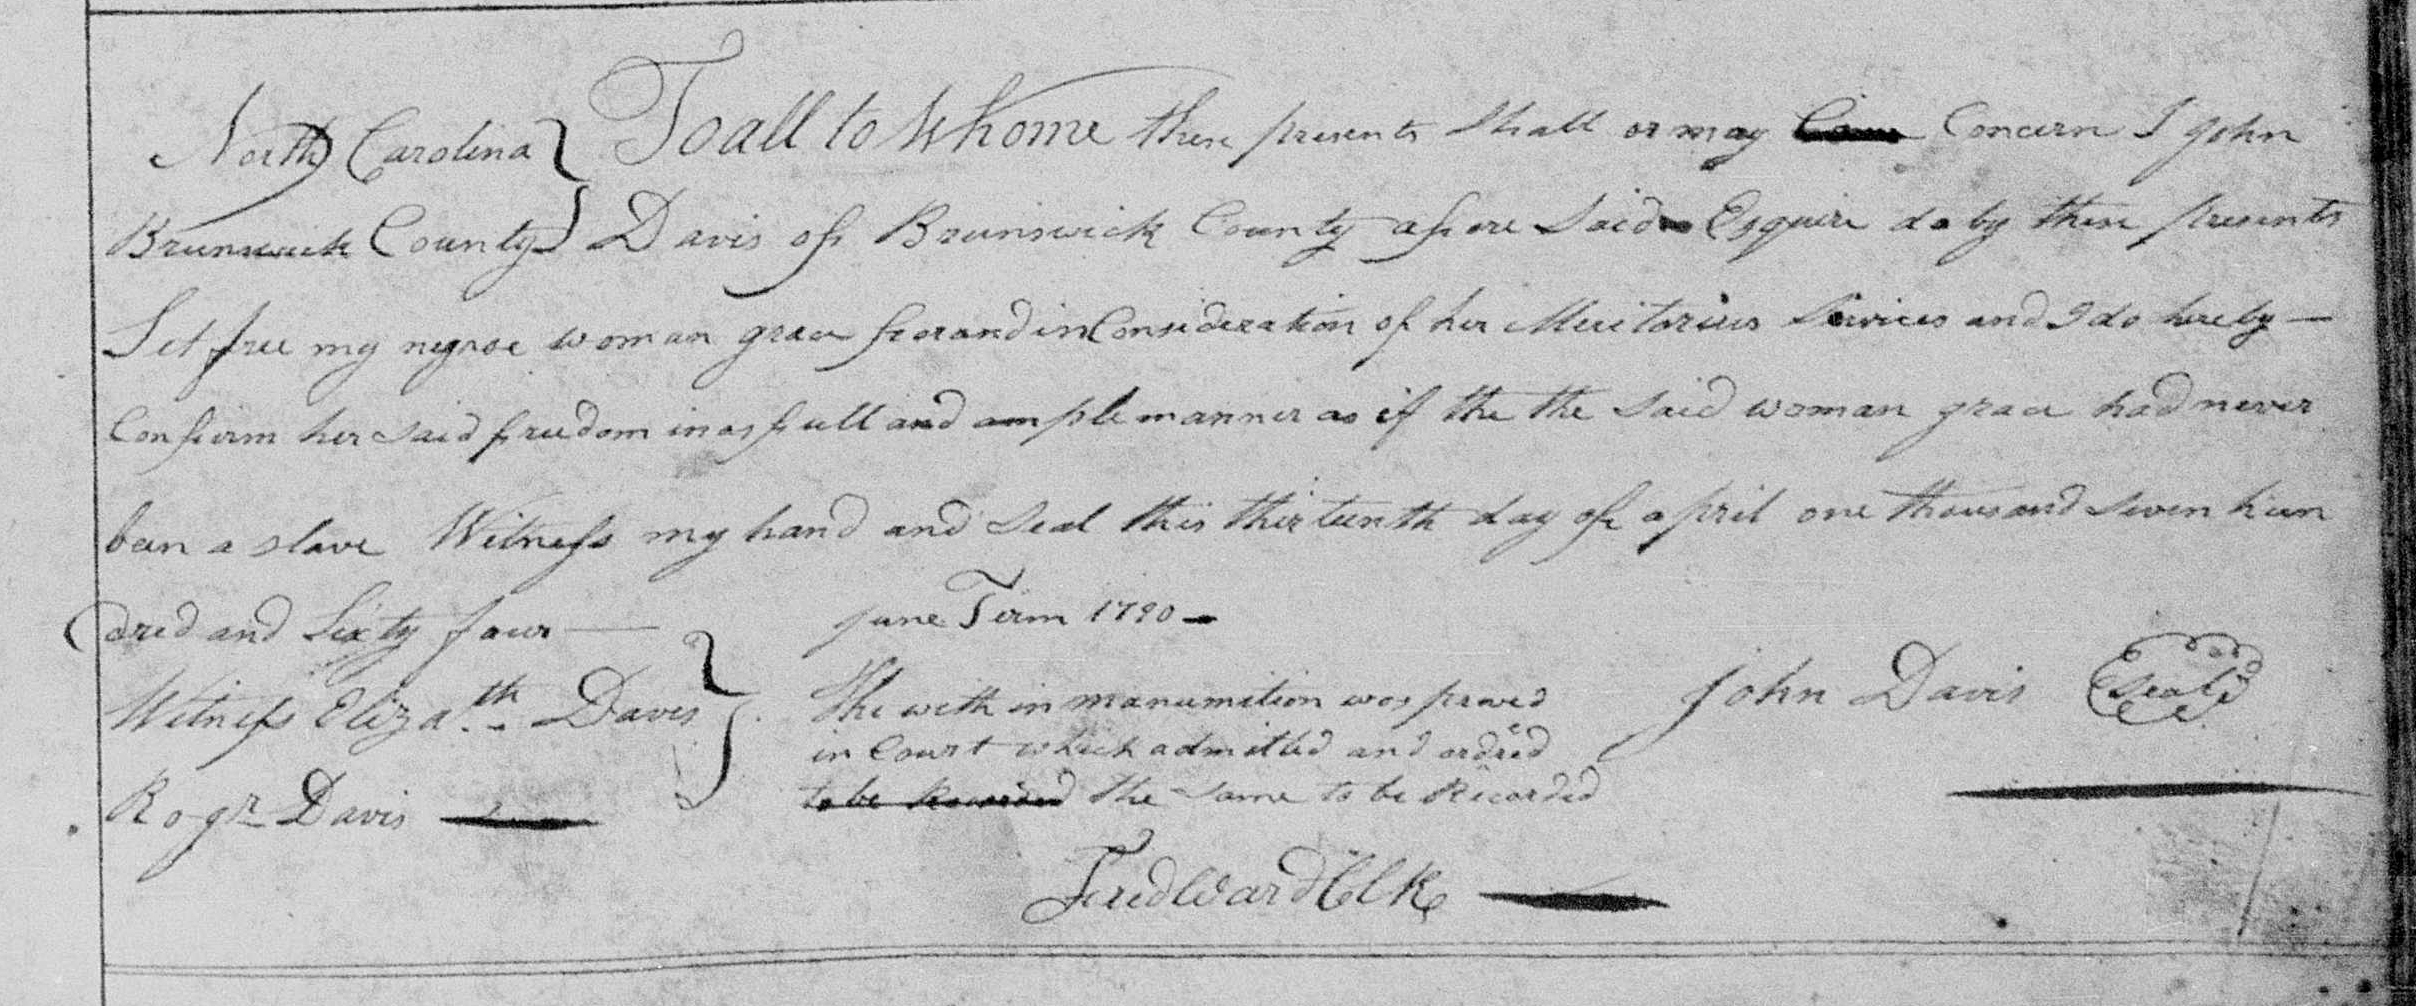 North Carolina } To all to Whome these presents Shall or may Come Concern I John
Brunswick County } Davis of Brunswick County afore Said Esquire do by these presents
Set free my negroe woman grace for and in Consideration of her Meritorius Services and I do hereby —
Confirm her said freedom in as full and ample manner as if the the said woman grace had never
been a slave Witness my hand and Seal this thirteenth day of april one thousand seven hun
dred and Sixty four —
june Term 1790 —
Witness Elizath Davis }
Rogr Davis —
The with in manumition was proved
in Court which admitted and ordred
to be Recorded the same to be Recorded
John Davis Seal
Fred Ward Clk